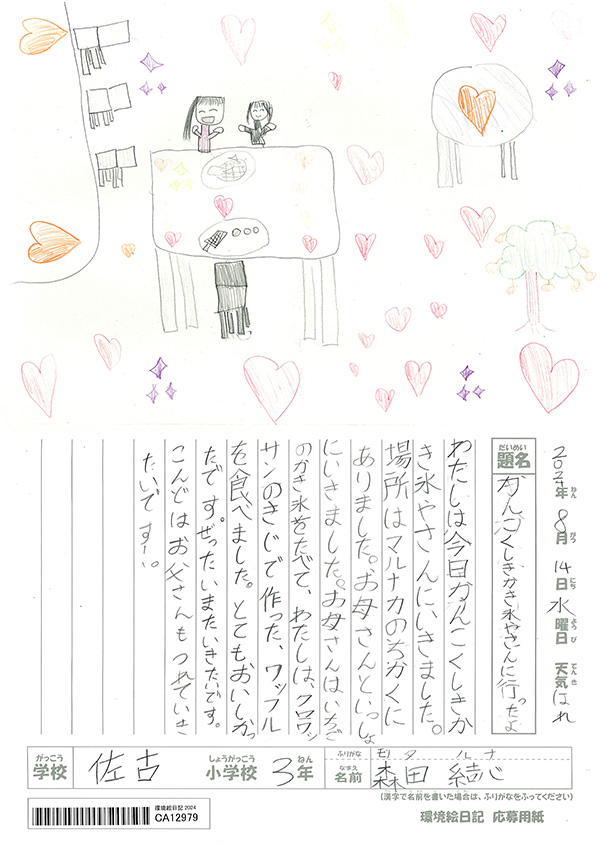 2024年ねん 8月がつ 14日にち 水曜日ようび 天気てんき はれ
だいめい
題名
かんこくしきかき氷やさんに行ったよ
わたしは今日かんこくしきか
き氷やさんにいきました。
場所はマルナカのちかくに
ありました。お母さんといっしょ
にいきました。お母さんはいちご
のかき氷をたべて、わたしは、クロワッ
サンのきじで作った、ワッフル
を食べました。とてもおいしかっ
たです。ぜったいまたいきたいです。
こんどはお父さんもつれていき
たいですー。
がっこう
学校
佐古
しょうがっこう
小学校
3年ねん
ふりがな
モリタ ルナ
なまえ
名前
森田 結心
(漢字で名前を書いた場合は、ふりがなをふってください)
環境絵日記 2024
CA12979
環境絵日記 応募用紙